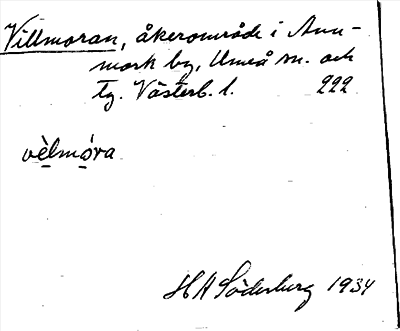 Villmoran, åkerområde i Ann-
mark by, Umeå sn. och
tg. Västerb. l. 222
vèlmóra
H A Söderberg 1934